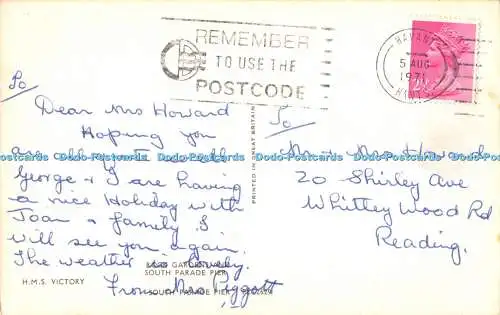 REMEMBER
TO USE THE
POSTCODE
HAVANT
5 AUG
1971
HANTS
2½
To
Dear Mrs Howard
Hoping you
are all
George + I are having
a nice Holiday with
Joan + family I
will see you again.
The weather is lovely.
From Mrs Piggott
H.M.S. VICTORY
SOUTH PARADE PIER
SOUTH PARADE PIER
PRINTED IN GREAT BRITAIN
To
Mr + Mrs Howard
20 Shirley Ave
Whittley Wood Rd
Reading.
Dodo-Postcards Dodo-Postcards Dodo-Postcards Dodo-Postcards Dodo-Postcards Dodo-Postcards